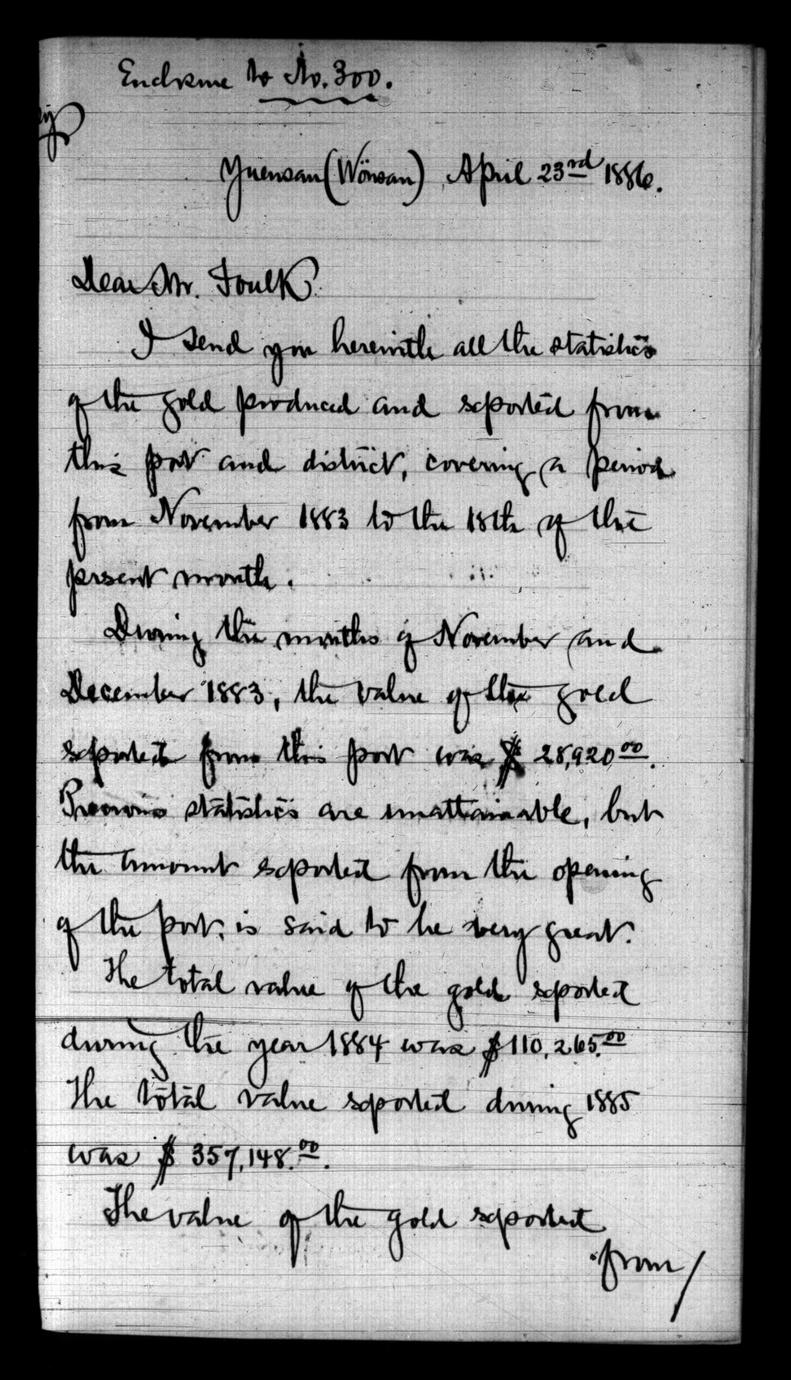 Enclosure to No. 300.
Yuensan (Wönsan) April 23rd 1886.
Dear Mr. Foulk
I send you herewith all the statistics
of the gold produced and exported from
this port and district, covering a period
from November 1883 to the 18th of the
present month.
During the months of November and
December 1883, the value of the gold
exported from this port was $ 28,920 00.
Previous statistics are unattainable, but
the amount exported from the opening
of the port, is said to be very great.
The total value of the gold exported
during the year 1884 was $110,265.00
The total value exported during 1885
was $ 357,148.00.
The value of the gold exported
from/